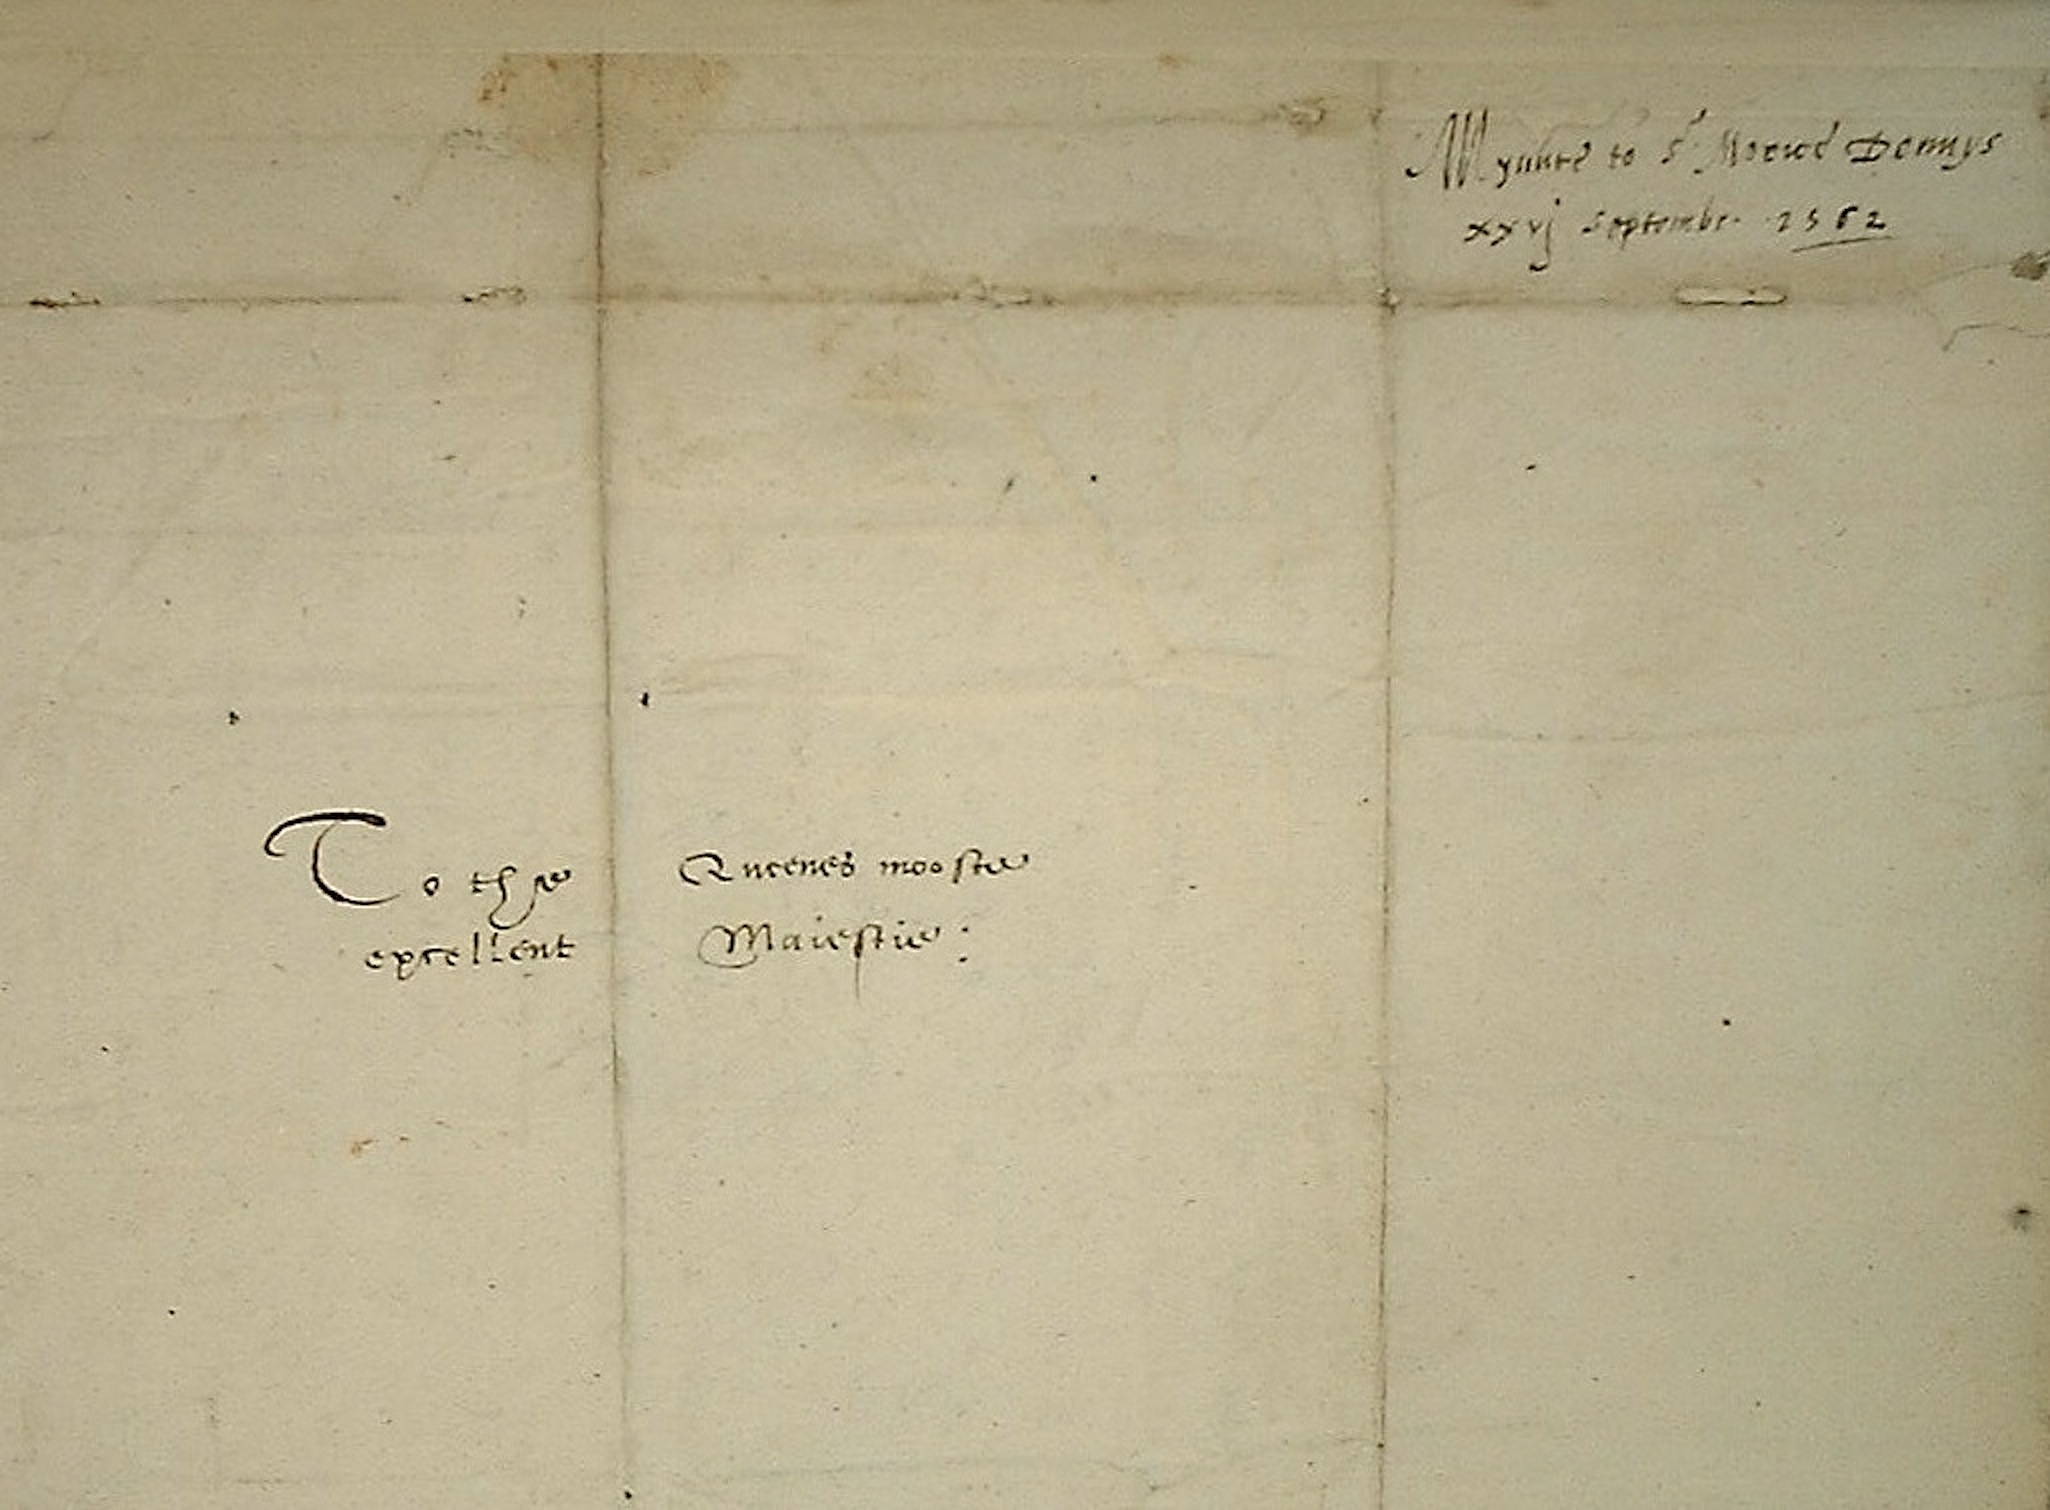 Mynute to Sr Morice Dennys
xxvj Septembr. 1562
To the Queenes mooste
excellent Maiestie: